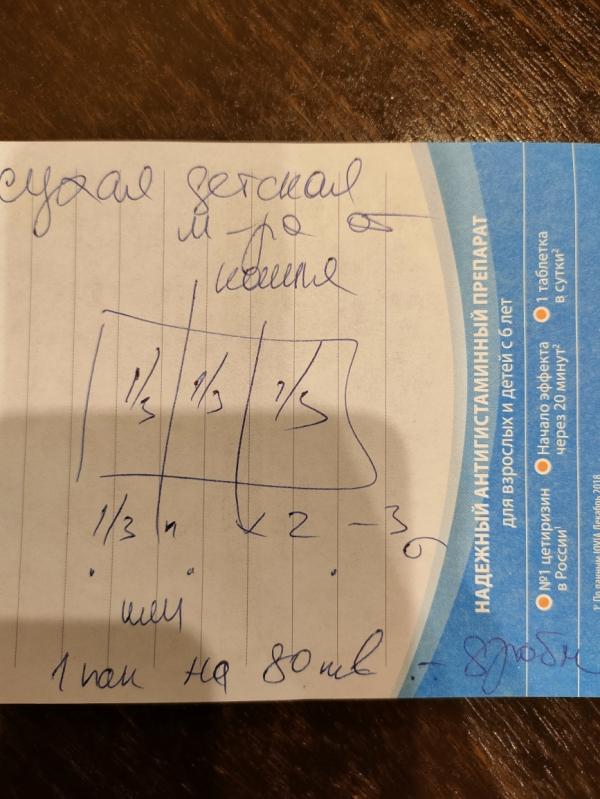 сухая детская
м-ра от
кашля
1/3 1/3 1/3
1/3 п x 2 - 3
или
1 пак на 80
НАДЕЖНЫЙ АНТИГИСТАМИННЫЙ ПРЕПАРАТ
для взрослых и детей с 6 лет
№1 цетиризин
в России¹
Начало эффекта
через 20 минут²
1 таблетка
в сутки²